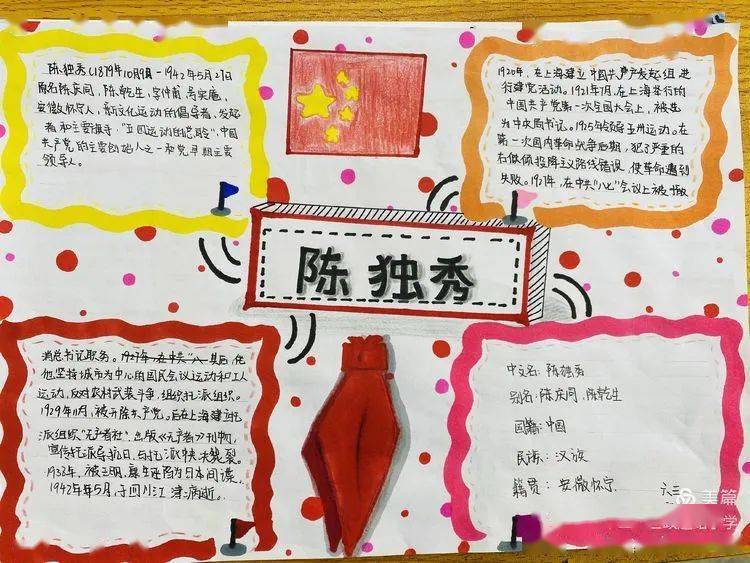 陈独秀(1879年10月9日-1942年5月27日
原名陈庆同、陈乾生,字仲甫号实庵,
安徽怀宁人,新文化运动的倡导者,发起
者和主要旗手,"五四运动的总司令"中国
共产党的主要创始人之一和党早期主要
领导人。
1920年,在上海建立中国共产产发起组 进
行建党活动。1921年7月,在上海举行的
中国共产党第一次全国大会上,被选
为中央局书记。1925年领导五卅运动。在
第一次国内革命战争后期,犯了严重的
右倾投降主义路线错误,使革命遭到
失败。1927年,在中共"八七"会议上被
陈独秀
消总书记职务。1927年,在中共"八
他坚持城市为中心的国民会议运动和工人
运动,反对农村武装斗争,组织托派组织。
1929年11月,被开除共产党。后在上海建立托
派组织"无产者社",出版《无产者》刊物,
宣传托派
1938年,被王明、康生诬陷为日本间谍。
1942年5月,于四川江津病逝。
中文名:陈独秀
别名:陈庆同、陈乾生
国籍:中国
民族:汉族
籍贯:安徽怀宁
美篇